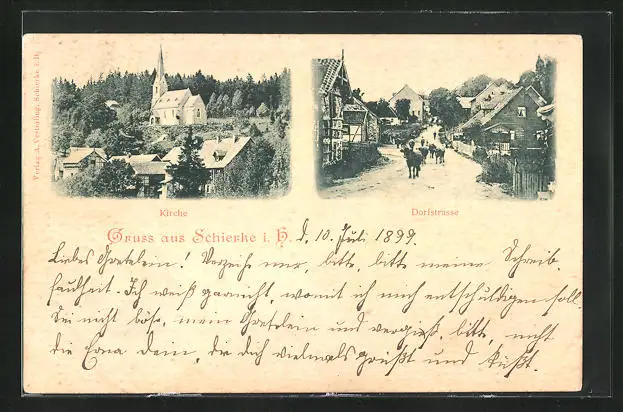 Verlag A. Vesterling, Schierke i. H.
Kirche
Dorfstrasse
Gruss aus Schierke i. H. d. 10. Juli 1899.
Liebes Gretelein! Verzeih' nur, bitte, bitte meine Schreib-
faulheit. Ich weiß garnicht, womit ich mich entschuldigen soll.
Sei nicht böse, mein Gretelein und vergiß, bitte, nicht
die Erna Dein, die dich vielmals grüßt und küßt.